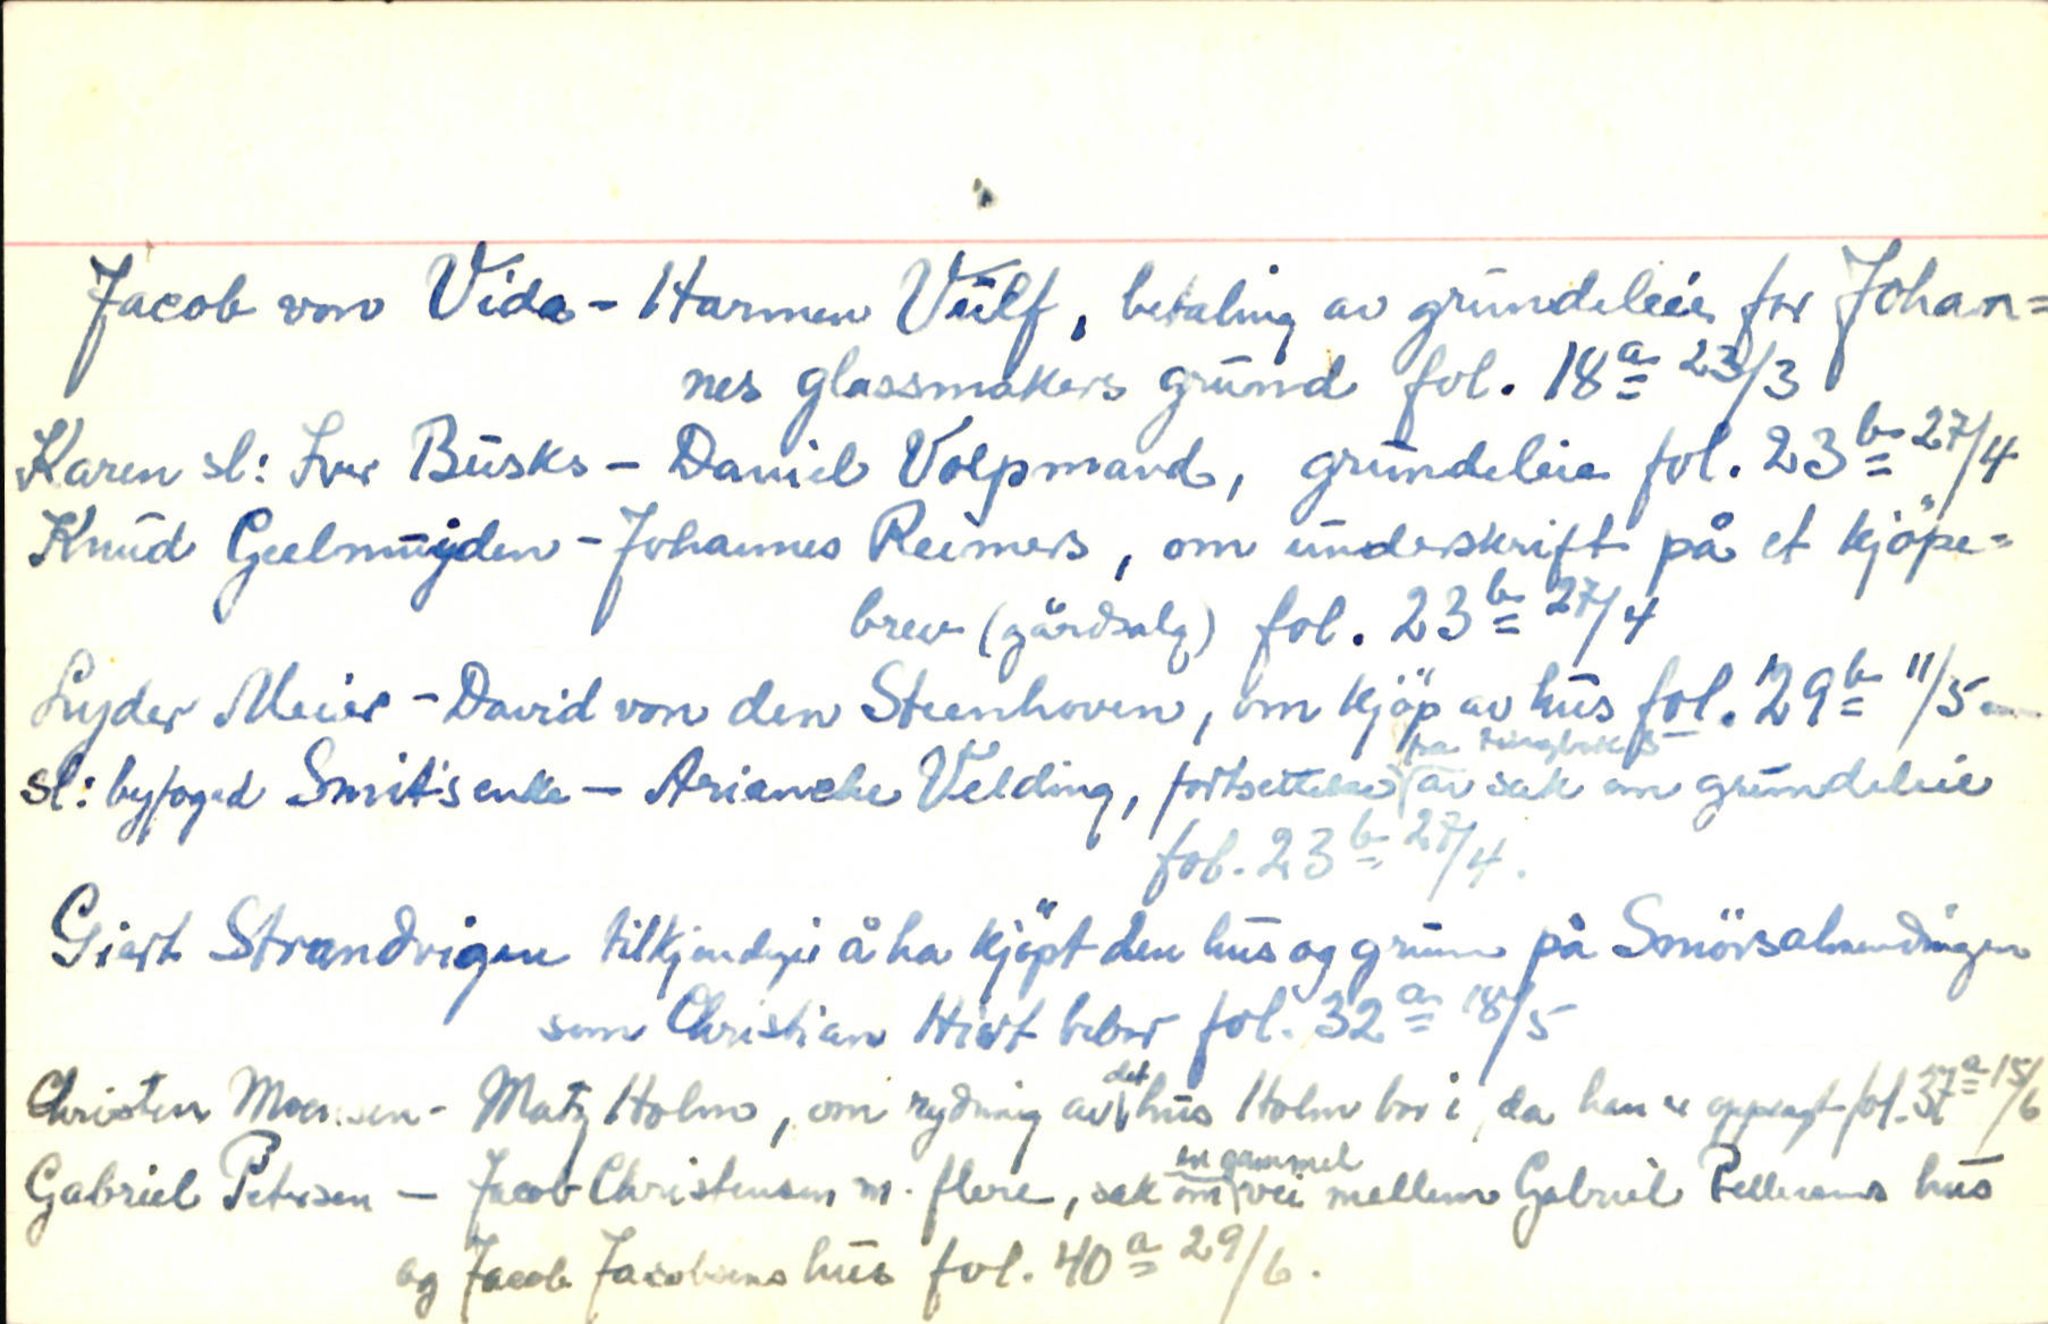 Jacob von Vida - Harmen Vülf, betaling av grundeleie for Johan=
nes glassmakers grund fol. 18a 23/3
Karen sl: Iver Busks - Daniel Volpmand, grundeleie fol. 23b 27/4
Knud Geelmuyden - Johannes Reimers, om underskrift på et kjöpe=
brev (gårdsalg) fol. 23b 27/4
Lyder Meier - David von den Steenhoven, om kjöp av hus fol. 29b 11/5
fra tingbok
sl: byfoged Smits enke - Arianche Velding, fortsettelse av sak om grundeleie
fol. 23b 27/4.
Giert Strandvigen å ha kjöpt den hus og grunn på Smörsalmendingen
som Christian Hiort bebor fol. 32a 18/5
Christen - Matz Holm, om rydning av det hus Holm bor i, da han er oppsagt fol. 37a 15/6
Gabriel Petersen - Jacob Christensen m. flere, sak om en gammel vei mellem Gabriel hus
og Jacob Jacobsens hus fol. 40a 29/6.